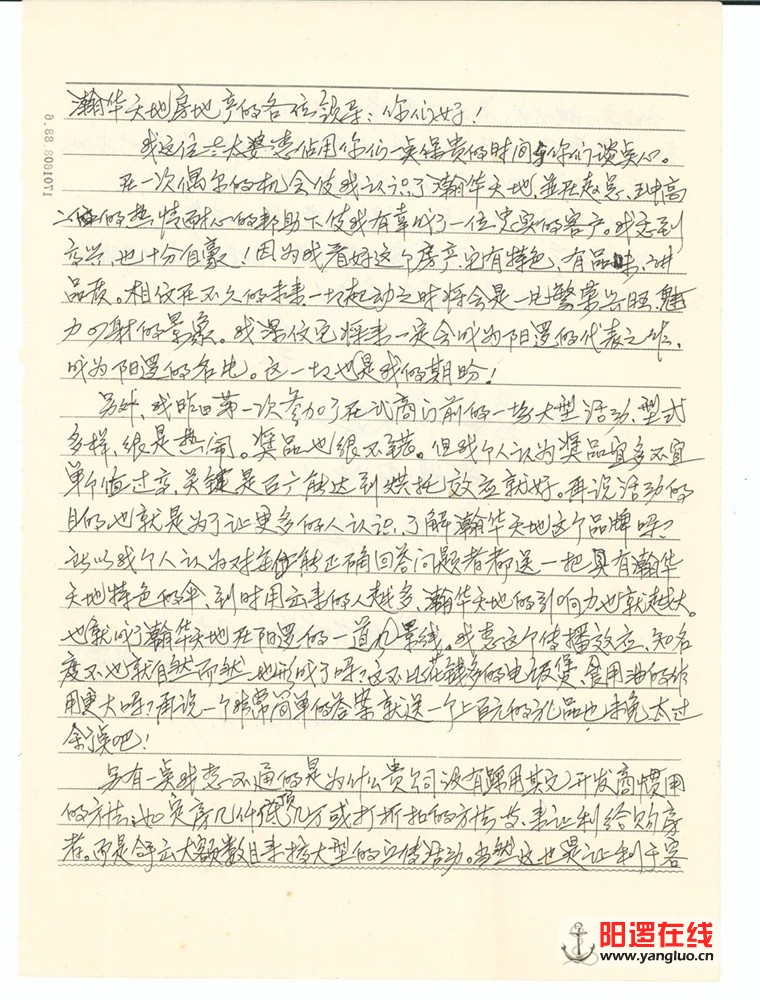 瀚华天地房地产的各位领导：你们好！
我这位老太婆想佔用你们一点保贵的时间与你们谈点心。
在一次偶尔的机会使我认识了瀚华天地，並在赵总、
二位的热情耐心的帮助下使我有幸成了一位忠实的客户。我感到
高兴，也十分自豪！因为我看好这个房产，它有特色、有品味、讲
品质。相信在不久的未来一切起动之时将会是一片繁荣兴旺、魅
力四射的景象。我深信它将来一定会成为阳逻的代表之作，
成为阳逻的名片。这一切也是我的期盼！
另外，我昨日第一次参加了在武商门前的一场大型活动，型式
多样，很是热闹。奖品也很不差。但我个人认为奖品宜多不宜
单个值过高，关键是百户能达到烘托效应就好。再说活动的
目的，也就是为了让更多的人认识、了解瀚华天地这个品牌吗？
所以我个人认为对在能正确回答问题者都送一把具有瀚华
天地特色的伞，到时用出来的人越多，瀚华天地的引响力也就越大。
也就成了瀚华天地在阳逻的一道风景线。我想这个传播效应、知名
度不也就自然而然地形成了吗？这不比花钱多的电饭煲、食用油的作
用更大吗？再说一个非常简单的答案就送一个上百元的礼品也未免太过
余了点吧！
另有一点我想不通的是为什么贵公司没有踩用其它开发商惯用
的方法：如定房几仟抵几万或打折扣的方法等，来让利给购房
者。而是拿出大额数目来搞大型的宣传活动。当然这也是让利于客
8.88.8081071
阳逻在线
www.yangluo.cn